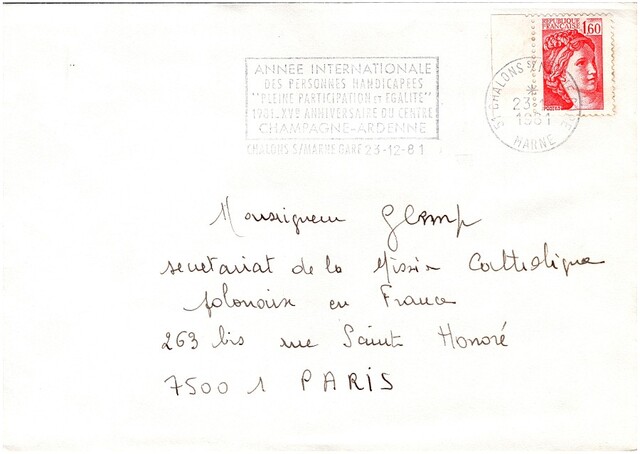 ANNÉE INTERNATIONALE
DES PERSONNES HANDICAPÉES
"PLEINE PARTICIPATION ET ÉGALITÉ"
1981.XVe ANNIVERSAIRE DU CENTRE
CHAMPAGNE-ARDENNE
CHALONS S/MARNE GARE 23-12-81
REPUBLIQUE FRANÇAISE 1,60
POSTES
51 CHALONS S/M GARE
23
1981
MARNE
Monseigneur Glemp
secretariat de la Mission Catholique
polonaise en France
263 bis rue Saint Honoré
75001 PARIS